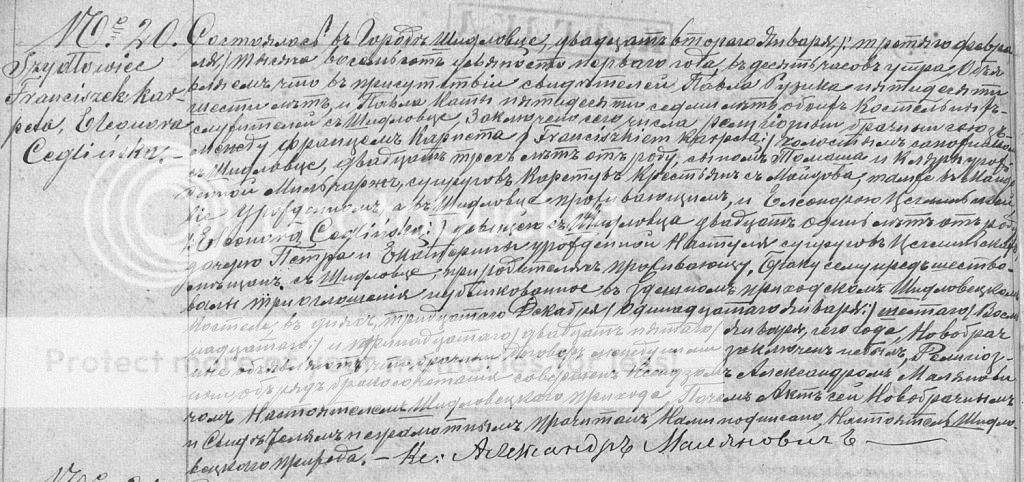 № 20.
Szydłowiec
Franciszek Kar-
peta, Eleonora
Ceglińska.
Состоялось въ Городѣ Шидловцѣ, двадцать втораго Января /: третяго Февра-
ля / тысяча восемьсотъ девяносто перваго года, въ десять часовъ утра. Объ-
являемъ что въ присутствіи свидѣтелей Павла Рузика пятидесяти
шести лѣтъ, и Павла Каты пятидесяти седми лѣтъ, обоихъ Костельныхъ
служителей съ Шидловца. Заключено сего числа религіозный брачный союзъ
между Францемъ Карпета /: Franciszkiem Karpeta :/ холостымъ
съ Шидловца, двадцать трехъ лѣтъ отъ роду, сыномъ Томаша и Кляры урож-
денной супруговъ Карпетовъ крестьянъ съ тамже въ
урожденнымъ а въ Шидловцѣ проживающимъ, и Елеонорою Цеглинской
/: Eleonorą Ceglińską :/ дѣвицею съ Шидловца двадцать одинъ лѣтъ отъ роду
дочерю Петра и Екатерины урожденной супруговъ Цеглинскихъ
мѣщанъ съ Шидловца, при родителяхъ проживающу. Браку сему предшество-
вали три оглашенія публикованное въ здешномъ приходскомъ Шидловецкомъ
Костелѣ, въ дняхъ, тридцатаго Декабря / Одинадцатаго Января :/ шестаго / Восем-
надцатаго :/ и тринадцатаго / двадцать пятаго / Января, сего года, Новобрач-
ные что брачный договоръ между ними заключенъ небылъ, Религіоз-
ный обрядъ бракосочетанія совершенъ Ксендзомъ Александромъ Маляновиче-
чомъ Настоятелемъ Шидловецкаго прихода. Почемъ Актъ сей Новобрачнымъ
и Свидѣтелямъ неграмотнымъ прочитанъ Нами подписано, Настоятель Шидло-
вецкаго прихода. — Кс: Александръ Маляновичъ —
Protect more of your memories for less!